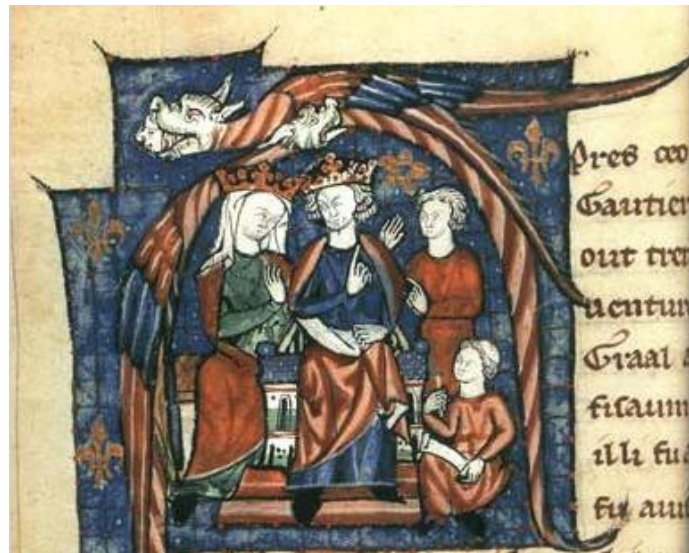 Apres ceo
Gautier
out tre
uentur
Graal
fisaum
illi fu
fu